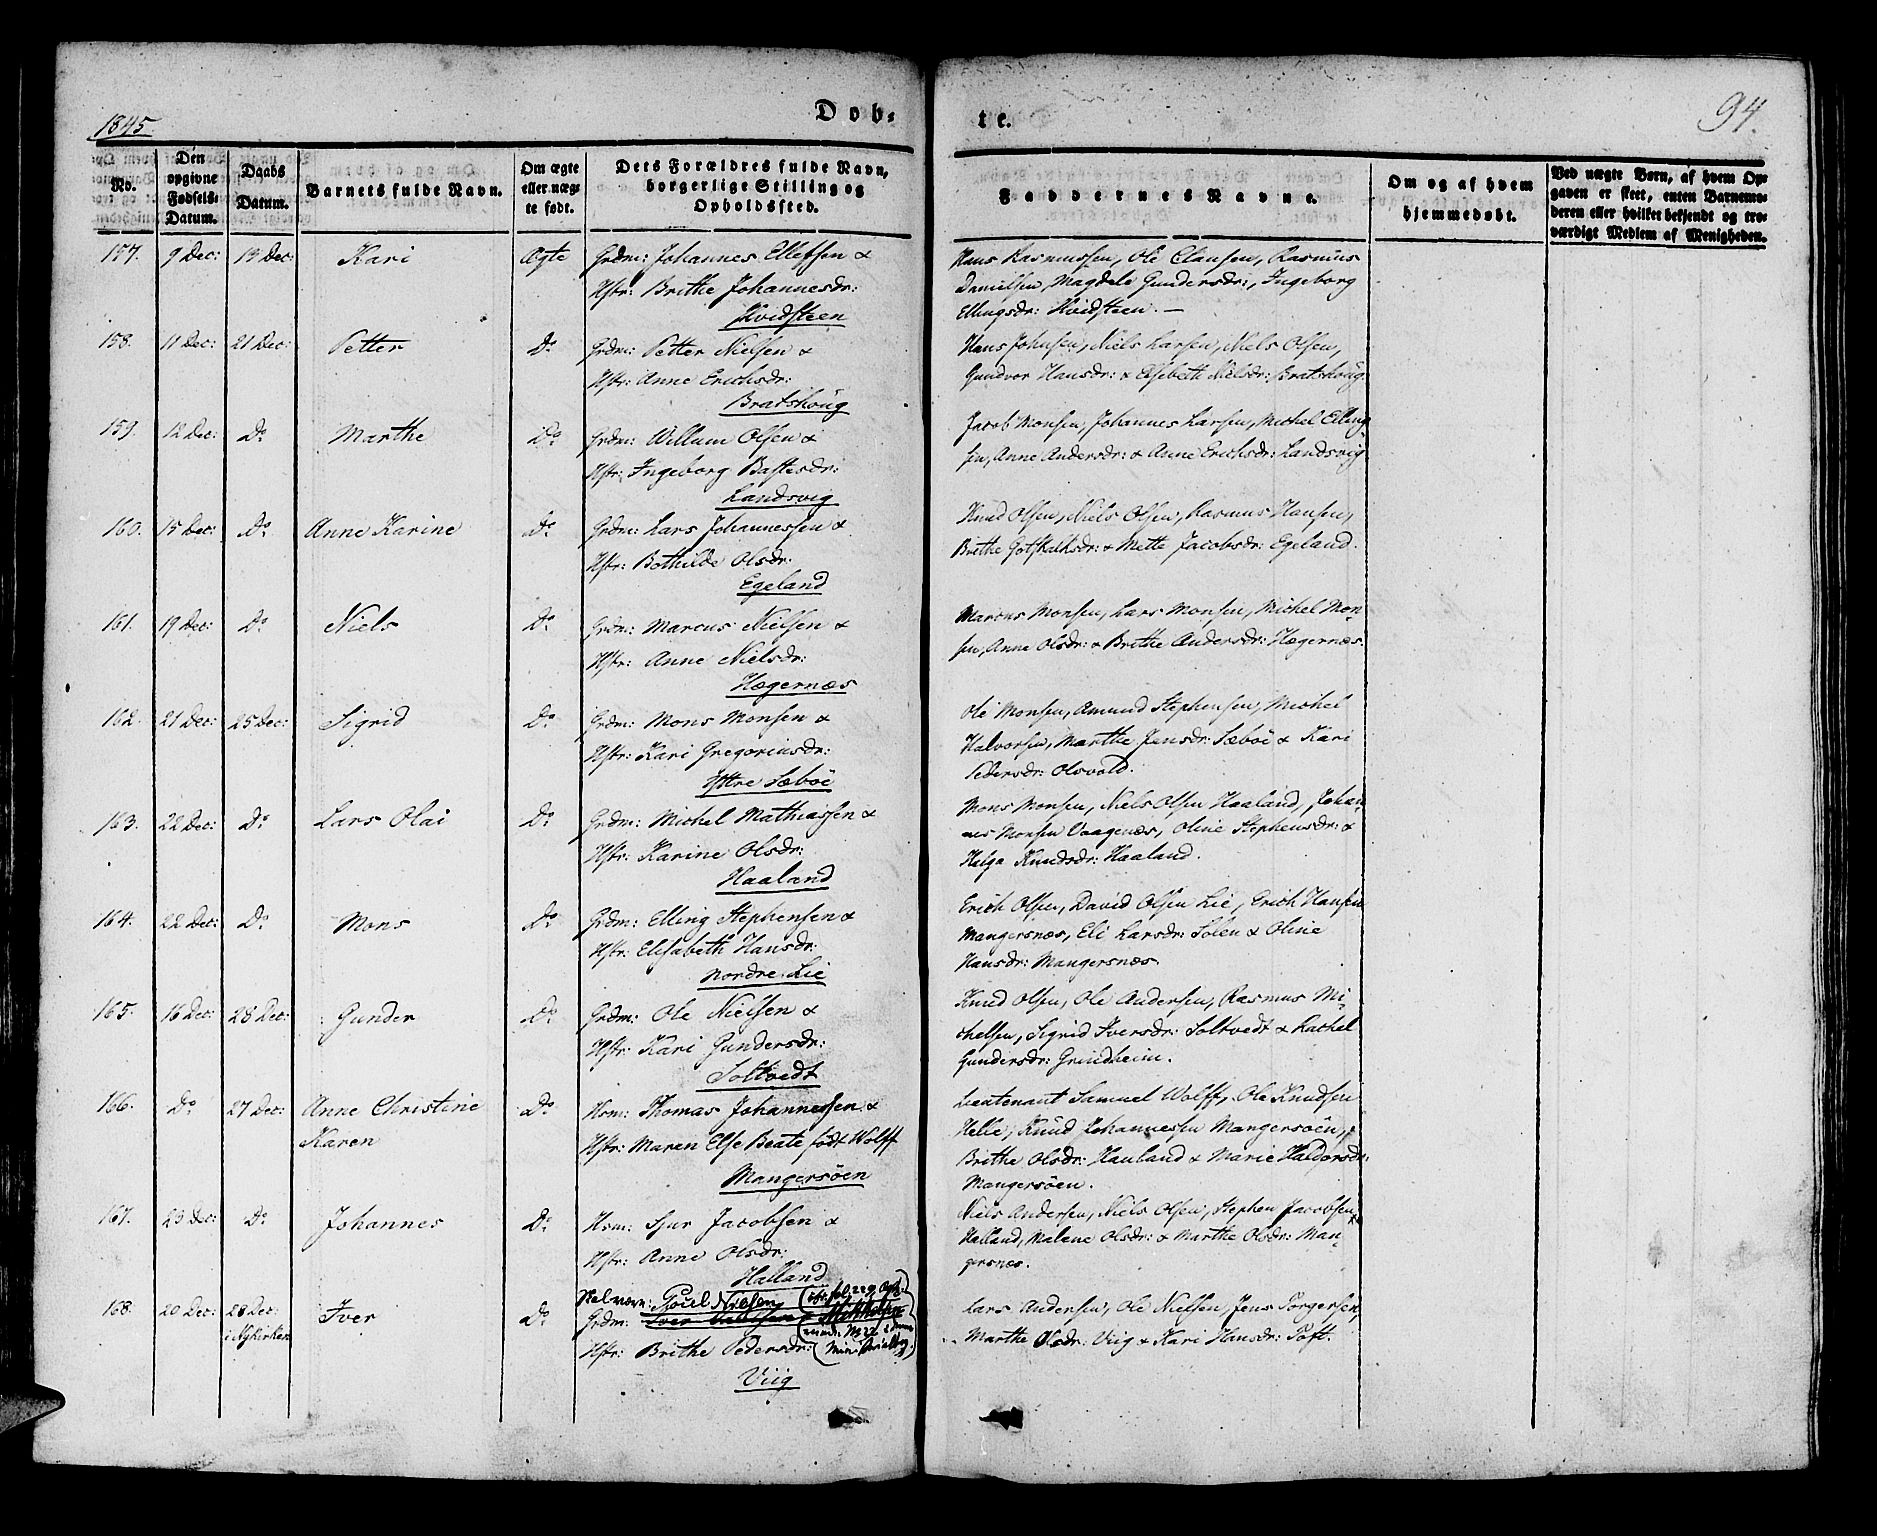 1845
Døb-
te.
94.
No.
Den opgivne Fødsels-Datum.
Daabs Datum.
Barnets fulde Navn.
Om ægte eller uægte født.
Dets Forældres fulde Navn, borgerlige Stilling og Opholdssted.
Faddernes Navne.
Om og af hvem hjemmedøbt.
Ved uægte Børn, af hvem Opgaven er skeet, enten Barnemoderen eller hvilket bekjendt og troværdigt Medlem af Menigheden.
157. 9 Dec: 19 Dec: Kari Ægte Grdm: Johannes Ellefsen &
Hstr: Brithe Johannesdr:
Hvidsteen
Hans Rasmussen, Ole Clausen, Rasmus
Danielsen, Magdele Gundersdr:, Ingeborg
Ellingsdr: Hvidsteen. —
158. 11 Dec: 21 Dec: Petter Do Grdm: Petter Nielsen &
Hstr: Anne Erichsdr:
Bratshoug
Hans Johnsen, Niels Larsen, Niels Olsen,
Gundvor Hansdr: & Elsebeth Nielsdr: Bratshoug.
159. 12 Dec: Do Marthe Do Grdm: Willum Olsen &
Hstr: Ingeborg Bastesdr:
Landsvig
Jacob Monsen, Johannes Larsen, Michel Elling-
sen, Anne Andersdr: & Anne Erichsdr: Landsvig
160. 15 Dec: Do Anne Karine Do Grdm: Lars Johannessen &
Hstr: Bothilde Olsdr:
Egeland
Knud Olsen, Niels Olsen, Rasmus Hansen,
Brithe Gotskalksdr: & Mette Jacobsdr: Egeland.
161. 19 Dec: Do Niels Do Grdm: Marcus Nielsen &
Hstr: Anne Nielsdr:
Hægernæs
Marcus Monsen, Lars Monsen, Michel Mon-
sen, Anne Olsdr: & Brithe Andersdr: Hægernæs.
162. 21 Dec: 25 Dec: Sigrid Do Grdm: Mons Monsen &
Hstr: Kari Gregoriusdr:
Yttre Sæböe
Ole Monsen, Amund Stephensen, Michel
Halvorsen, Marthe Jensdr: Sæböe & Kari
Pedersdr: Olsvold.
163. 22 Dec: Do Lars Olai Do Grdm: Michel Mathiassen &
Hstr: Karine Olsdr:
Haaland
Mons Monsen, Niels Olsen Haaland, Johan-
nes Monsen Vaagenæs, Oline Stephensdr: &
Helga Knudsdr: Haaland.
164. 22 Dec: Do Mons Do Grdm: Elling Stephensen &
Hstr: Elisabeth Hansdr:
Nordre Lie
Erich Olsen, David Olsen Lie, Erich Hansen
Mangersnæs, Eli Larsdr: Solen & Oline
Hansdr: Mangersnæs.
165. 16 Dec: 28 Dec: Gunder Do Grdm: Ole Nielsen &
Hstr: Kari Gundersdr:
Soltvedt
Knud Olsen, Ole Andersen, Rasmus Mi-
chelsen, Sigrid Iversdr: Soltvedt & Rachel
Gundersdr: Grindheim.
166. Do 27 Dec: Anne Christine Do Hsm: Thomas Johannessen &
Karen Hstr: Maren Else Beate født Wolff
Mangersöen
Lieutenant Samuel Wolff, Ole Knudsen
Helle, Knud Johannesen Mangersöen,
Brithe Olsdr: Hauland & Marie Haldorsdr:
Mangersöen.
167. 23 Dec: Do Johannes Do Hsm: Sjur Jacobsen &
Hstr: Anne Olsdr:
Halland
Niels Andersen, Niels Olsen, Stephen Jacobsen
Halland, Malene Olsdr: & Marthe Olsdr: Man-
gersnæs.
168. 20 Dec: 28 Dec: Iver Do Skal være: Poul Nilsen
i Nykirken Grdm: Iver
Hstr: Brithe Pedersdr:
Viig
Lars Andersen, Ole Nielsen, Jens Torgersen,
Marthe Olsdr: Viig & Kari Hansdr: Toft.